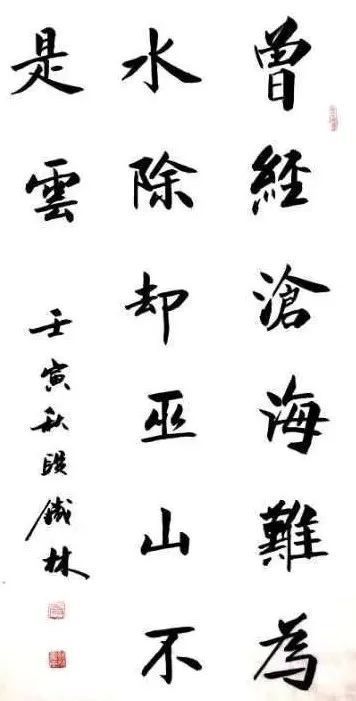 曾經滄海難為
水除却巫山不
是雲
壬寅秋鐵林